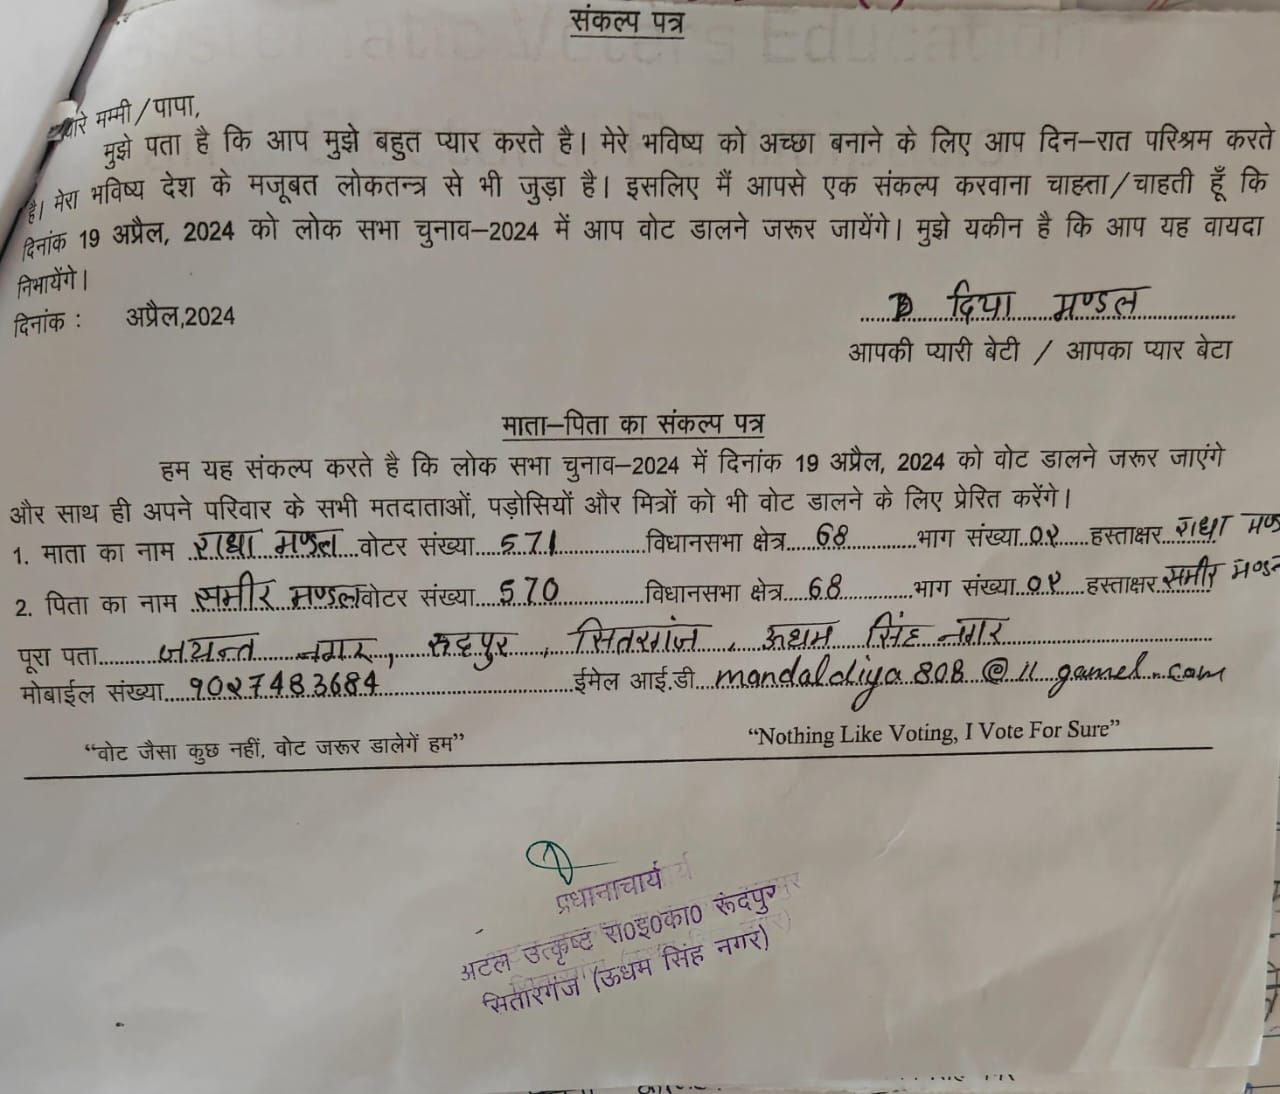 संकल्प पत्र
प्यारे मम्मी/पापा,
मुझे पता है कि आप मुझे बहुत प्यार करते है। मेरे भविष्य को अच्छा बनाने के लिए आप दिन–रात परिश्रम करते
है। मेरा भविष्य देश के मजूबत लोकतन्त्र से भी जुड़ा है। इसलिए मैं आपसे एक संकल्प करवाना चाहता/चाहती हूँ कि
दिनांक 19 अप्रैल, 2024 को लोक सभा चुनाव–2024 में आप वोट डालने जरूर जायेंगे। मुझे यकीन है कि आप यह वायदा
निभायेंगे।
दिनांक : अप्रैल,2024
दिया मण्डल
आपकी प्यारी बेटी / आपका प्यार बेटा
माता–पिता का संकल्प पत्र
हम यह संकल्प करते है कि लोक सभा चुनाव–2024 में दिनांक 19 अप्रैल, 2024 को वोट डालने जरूर जाएंगे
और साथ ही अपने परिवार के सभी मतदाताओं, पड़ोसियों और मित्रों को भी वोट डालने के लिए प्रेरित करेंगे।
1. माता का नाम राधा मण्डल वोटर संख्या 571 विधानसभा क्षेत्र 68 भाग संख्या 0९ हस्ताक्षर राधा
2. पिता का नाम समीर मण्डल वोटर संख्या 570 विधानसभा क्षेत्र 68 भाग संख्या 0९ हस्ताक्षर समीर
पूरा पता जयन्त नगर, रुद्रपुर, सितारगंज, ऊधम सिंह नगर
मोबाईल संख्या 9027483684 ईमेल आई.डी mandaldiya808@11 gamel.com
“वोट जैसा कुछ नहीं, वोट जरूर डालेगें हम” “Nothing Like Voting, I Vote For Sure”
प्रधानाचार्य
अटल उत्कृष्ट रा0इ0का0 रूंदपुर
सितारगंज (ऊधम सिंह नगर)